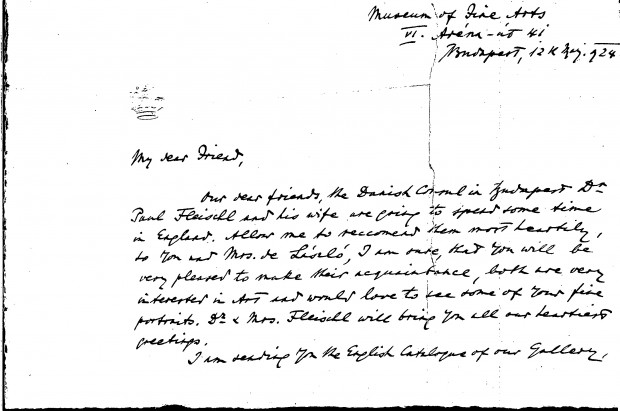 Museum of Fine Arts
VI. Aréna-út 41
Budapest, 12th May. 924
My dear Friend,
Our dear friends, the Danish Consul in Budapest Dr
Paul Fleisell and his wife are going to spend some time
in England. Allow me to reccomend them most heartily,
to You and Mrs. de László, I am sure, that You will be
very pleased to make their acquaintance, both are very
interested in Art and would love to see some of Your fine
portraits. Dr & Mrs. Fleisell will bring You all our heartiest
greetings.
I am sending You the English Catalogue of our Gallery,